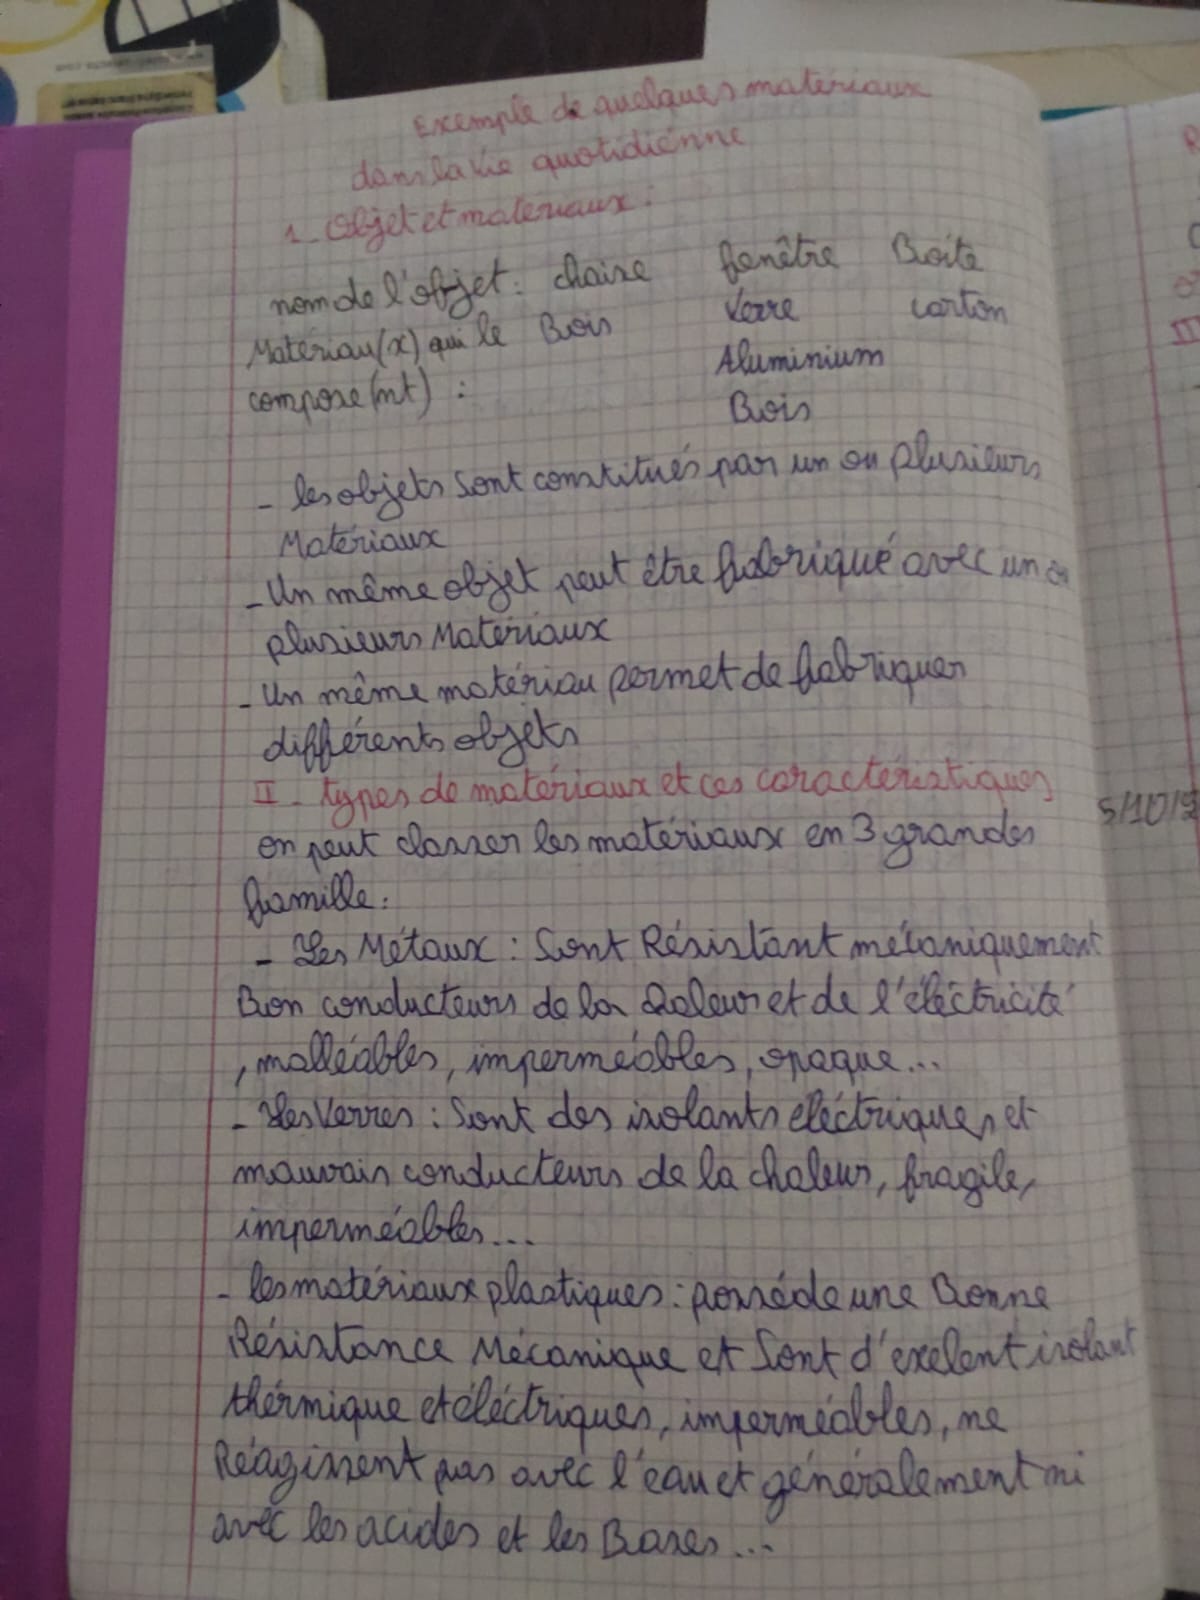 Exemple de quelques matériaux
dans la vie quotidiénne
1_ Objet et matériaux :
nom de l'objet : chaise fenêtre Boite
Matériau(x) qui le Bois Verre carton
compose(nt) : Aluminium
Bois
- les objets sont constitués par un ou plusieurs
Matériaux
- Un même objet peut être fabriqué avec un ou
plusieurs Matériaux
- Un même matériau permet de fabriquer
différents objets
II - types de matériaux et ces caractéristiques
on peut classer les matériaux en 3 grandes
famille :
- Les Métaux : Sont Résistant mécaniquement
Bon conducteurs de la chaleur et de l'éléctricité
, malléables, imperméables, opaque...
- Les Verres : Sont des isolants éléctriques et
mauvais conducteurs de la chaleur, fragile,
imperméables...
- les matériaux plastiques : posséde une Bonne
Résistance Mécanique et Sont d'exelent isolant
thérmique et éléctriques, imperméables, ne
Réagissent pas avec l'eau et généralement ni
avec les acides et les Bases...
5/10/2